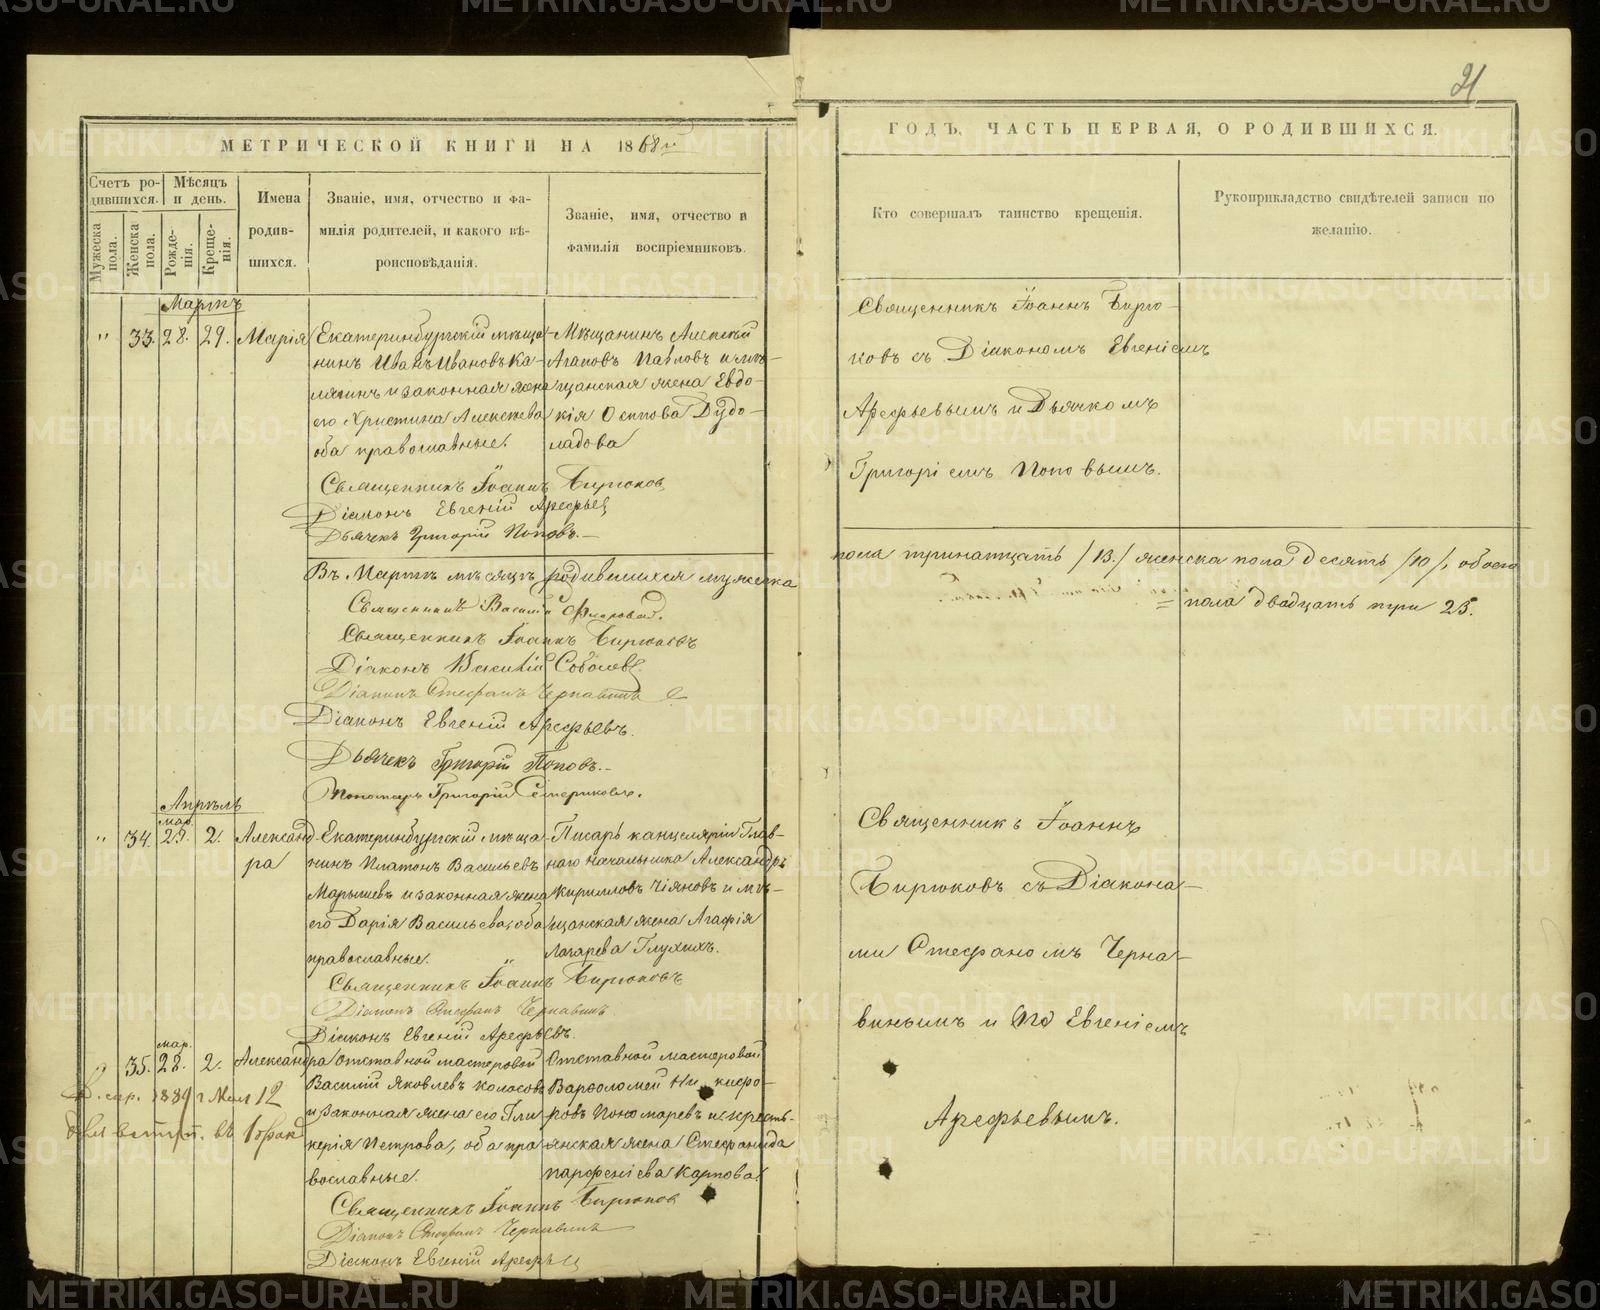 21
МЕТРИЧЕСКОЙ КНИГИ НА 1868й
Счетъ родившихся.
Мужеска пола.
Женска пола.
Мѣсяцъ и день.
Рожденія.
Крещенія.
Имена родившихся.
Званіе, имя, отчество и фамилія родителей, и какого вѣроисповѣданія.
Званіе, имя, отчество и фамилія воспріемниковъ.
Мартъ
" 33. 28. 29. Марія
Екатеринбургскій мѣща-
нинъ Иванъ Ивановъ Ка-
и законная жена
его Христина Алексѣева
оба православные.
Мѣщанинъ Алексѣй
Агаповъ Павловъ и мѣ-
щанская жена Евдо-
кія Осипова Дудо-
ладова
Священникъ Іоаннъ Бирюковъ
Діаконъ Евгеній Арефьевъ
Дьячекъ Григорій Поповъ.
Въ Мартѣ мѣсяцѣ родившихся мужеска
Священникъ Василій
Священникъ Іоаннъ Бирюковъ
Діаконъ Василій Соболевъ
Діаконъ Стефанъ Чернавинъ
Діаконъ Евгеній Арефьевъ.
Дьячекъ Григорій Поповъ.
Пономарь Григорій
Апрѣль
" 34. мар. 25. 2. Александ-
ра
Екатеринбургскій мѣща-
нинъ Платонъ Васильевъ
Марышевъ и законная жена
его Дарія Васильева, оба
православные.
Писарь канцеляріи Глав-
наго Начальника Александръ
Кирилловъ Чіяновъ и мѣ-
щанская жена Агафія
Лазарева Глухихъ.
Священникъ Іоаннъ Бирюковъ
Діаконъ Стефанъ Чернавинъ.
Діаконъ Евгеній Арефьевъ.
35. мар. 28. 2. Александра
Отставной мастеровой
Василій Яковлевъ Колосовъ
и законная жена его Гли-
керія Петрова, оба пра-
вославные.
Отставной мастеровой
Варѳоломей Никифо-
ровъ Пономаревъ и кресть-
янская жена Стефанида
Парфеніева Карпова.
1889 г Мая 12
для вступ. въ бракъ
Священникъ Іоаннъ Бирюковъ
Діаконъ Стефанъ Чернавинъ
Діаконъ Евгеній Арефьевъ
ГОДЪ, ЧАСТЬ ПЕРВАЯ, О РОДИВШИХСЯ.
Кто совершалъ таинство крещенія.
Рукоприкладство свидѣтелей записи по желанію.
Священникъ Іоаннъ Бирю-
ковъ съ Діакономъ Евгеніемъ
Арефьевымъ и Дьячкомъ
Григоріемъ Поповымъ.
пола тринатцать /13./ женска пола десять /10/, обоего
пола двадцать три 23.
Священникъ Іоаннъ
Бирюковъ съ Діакона-
ми Стефаномъ Черна-
винымъ и Евгеніемъ
Арефьевымъ.
METRIKI.GASO-URAL.RU